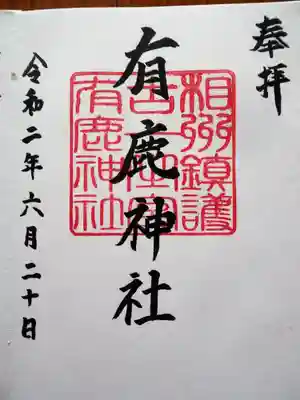 奉拝
有鹿神社
相州鎮護
有鹿神社
令和二年六月二十日